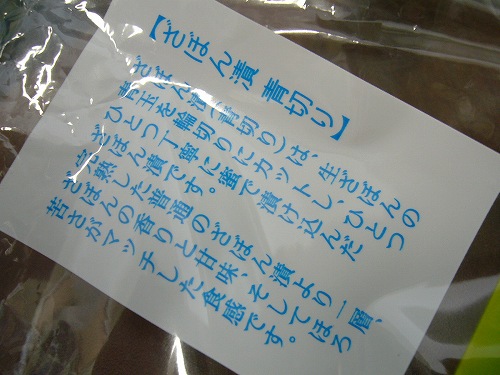 【ざぼん漬 青切り】
ざぼん漬（青切り）は、生ざぼんの
青玉を輪切りにカットし、ひとつ
ひとつ丁寧に蜜で漬け込んだ
ざぼん漬です。
完熟した普通のざぼん漬より一層、
ざぼんの香りと甘味、そしてほろ
苦さがマッチした食感です。